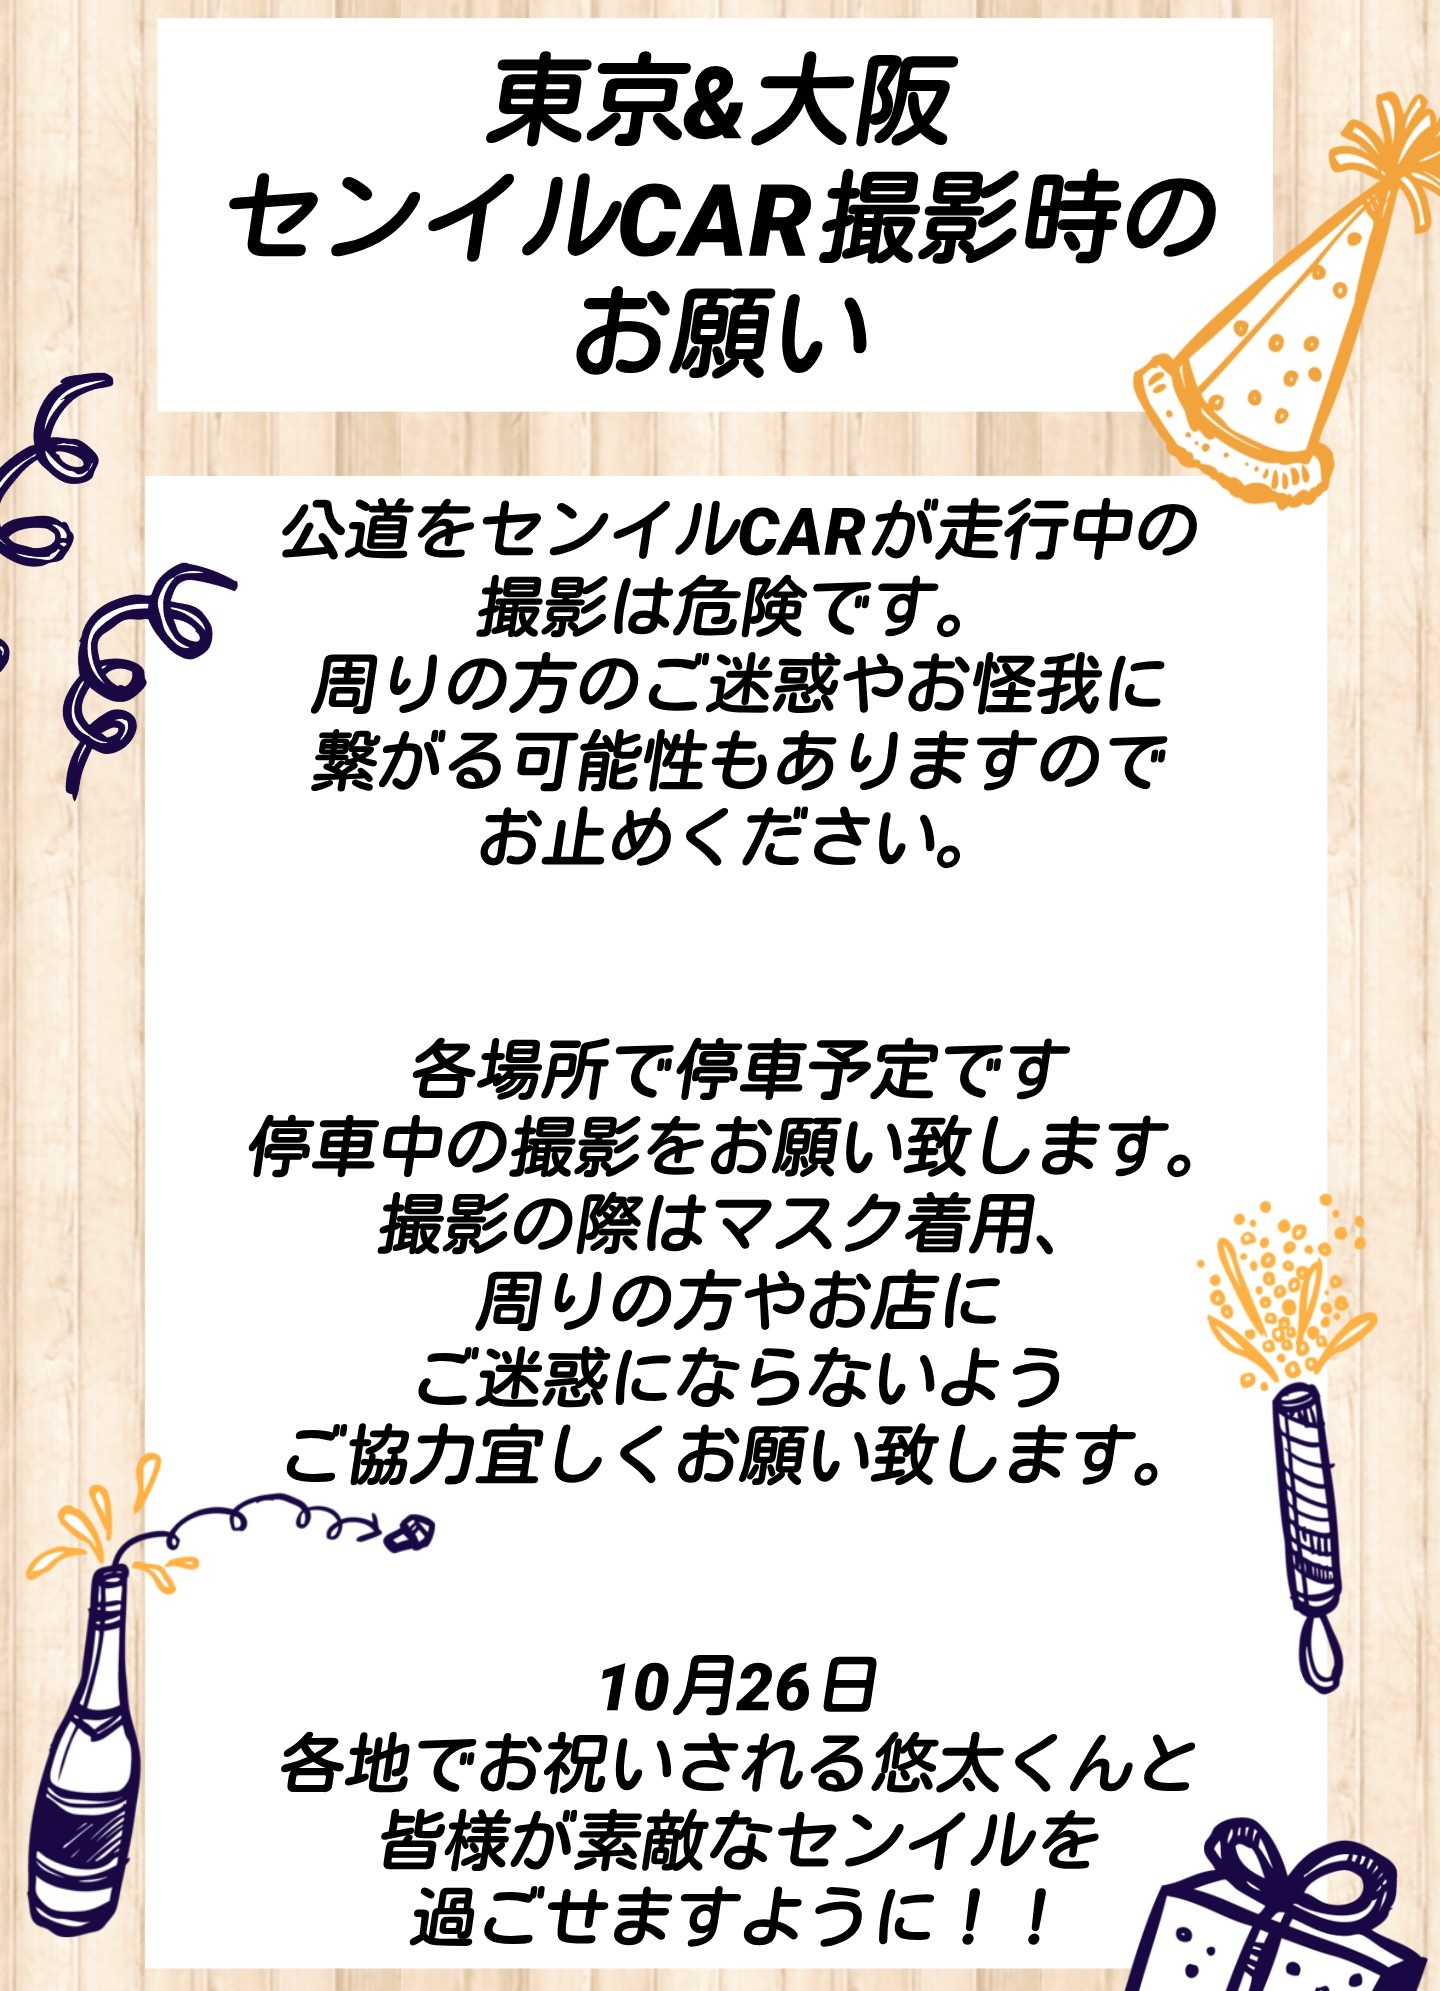 東京&大阪
センイルCAR撮影時の
お願い
公道をセンイルCARが走行中の
撮影は危険です。
周りの方のご迷惑やお怪我に
繋がる可能性もありますので
お止めください。
各場所で停車予定です
停車中の撮影をお願い致します。
撮影の際はマスク着用、
周りの方やお店に
ご迷惑にならないよう
ご協力宜しくお願い致します。
10月26日
各地でお祝いされる悠太くんと
皆様が素敵なセンイルを
過ごせますように！！